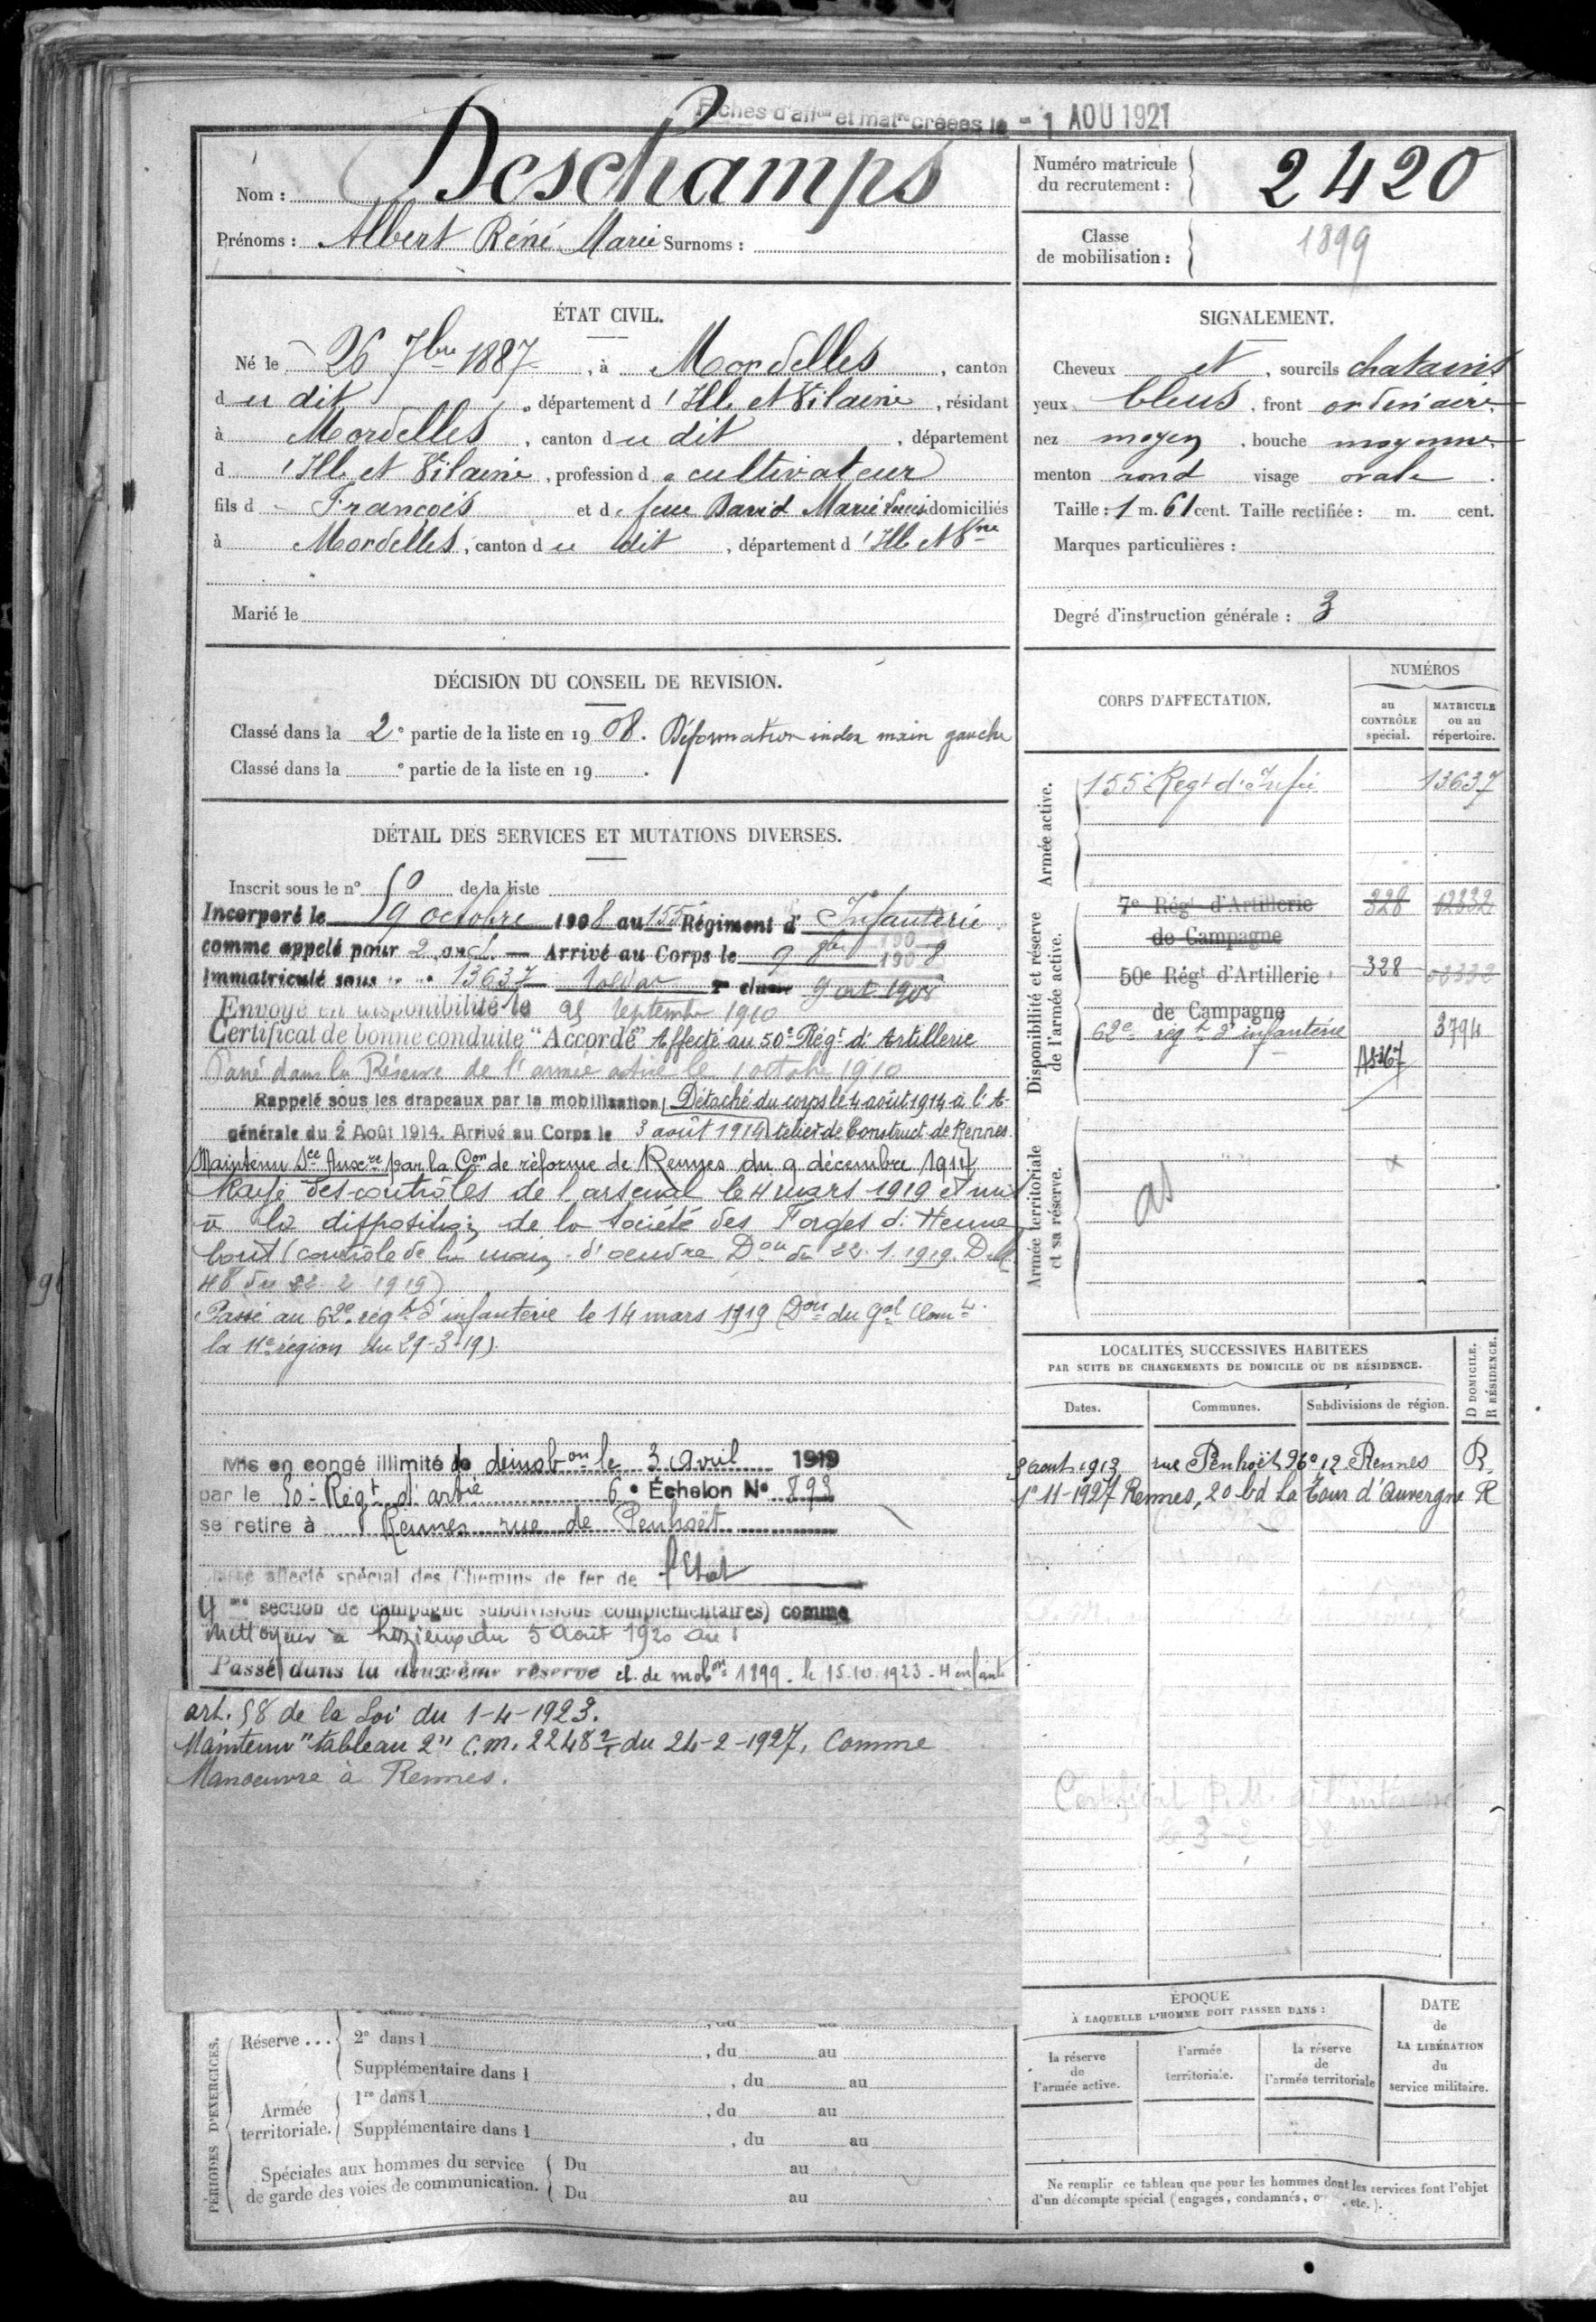 Fiches d'aff.on et mat.re créées le - 1 AOU 1921
Nom : Deschamps
Prénoms : Albert Réné Marie Surnoms :
Numéro matricule du recrutement : 2420
Classe de mobilisation : 1899
ÉTAT CIVIL.
Né le 26 7bre 1887, à Mordelles, canton
du dit, département d'Ille et Vilaine, résidant
à Mordelles, canton du dit, département
d'Ille et Vilaine, profession de cultivateur
fils de François et de feue David Marie Louise domiciliés
à Mordelles, canton du dit, département d'Ille et Vne
Marié le
SIGNALEMENT.
Cheveux et, sourcils chatains
yeux bleus, front ordinaire
nez moyen, bouche moyenne
menton rond visage ovale.
Taille : 1 m. 61 cent. Taille rectifiée : m. cent.
Marques particulières :
Degré d'instruction générale : 3
DÉCISION DU CONSEIL DE REVISION.
Classé dans la 2e partie de la liste en 1908. Déformation index main gauche
Classé dans la e partie de la liste en 19 .
DÉTAIL DES SERVICES ET MUTATIONS DIVERSES.
Inscrit sous le n° 50 de la liste
Incorporé le 9 octobre 1908 au 155e Régiment d'Infanterie
comme appelé pour 2 ans. — Arrivé au Corps le 9 8bre 1908
Immatriculé sous 13637 soldat 2e classe 9 oct 1908
Envoyé en disponibilité le 25 Septembre 1910
Certificat de bonne conduite "Accordé" Affecté au 50e Régt d'Artillerie
Passé dans la Réserve de l'armée active le 1 octobre 1910
Rappelé sous les drapeaux par la mobilisation Détaché du corps le 4 août 1914 à l'A-
générale du 2 Août 1914. Arrivé au Corps le 3 août 1914 telier de Construct de Rennes
Maintenu Sce Auxre par la Con de réforme de Rennes du 9 décembre 1914
Rayé des contrôles de l'arsenal le 4 mars 1919 et mis
à la disposition de la Société des Forges d'Henne
bont (contrôle de la main d'oeuvre Don du 22.1.1919. D
48 du 22.2.1919)
Passé au 62e régt d'infanterie le 14 mars 1919 (Don du Gal Comt
la 11e région du 29-3-19).
Mis en congé illimité de démobon le 3 Avril 1919
par le 50e Régt d'artie 6e Échelon N° 893
se retire à Rennes rue de Penhoët
affecté spécial des Chemins de fer de l'Etat
4me section de campagne subdivisions complémentaires) comme
Nettoyeur à du 5 Août 1920 au
Passé dans la deuxième réserve cl. de mobon 1899. le 15.10.1923 - 4 enfants
art. 58 de la Loi du 1-4-1923.
Maintenu "tableau 2" C.M. 2248 du 24-2-1927, Comme
Manoeuvre à Rennes.
CORPS D'AFFECTATION.
NUMÉROS
au CONTRÔLE spécial.
MATRICULE ou au répertoire.
Armée active.
155e Regt d'Infie 13637
Disponibilité et réserve de l'armée active.
7e Régt d'Artillerie 328 02332
de Campagne
50e Régt d'Artillerie 328 02332
de Campagne
62e régt d'infanterie 3794
Armée territoriale et sa réserve.
LOCALITÉS SUCCESSIVES HABITÉES
PAR SUITE DE CHANGEMENTS DE DOMICILE OU DE RÉSIDENCE.
Dates. Communes. Subdivisions de région. D DOMICILE. R RÉSIDENCE.
3 août 1913 rue Penhoët Rennes R.
1°-11-1927 Rennes, 20 bd La Tour d'Auvergne R
Certificat P.M. à l'intéressé
PÉRIODES D'EXERCICES.
Réserve ... 2e dans l , du au
Supplémentaire dans l , du au
Armée territoriale. 1re dans l , du au
Supplémentaire dans l , du au
Spéciales aux hommes du service de garde des voies de communication. Du au
Du au
ÉPOQUE
À LAQUELLE L'HOMME DOIT PASSER DANS :
la réserve de l'armée active.
l'armée territoriale.
la réserve de l'armée territoriale
DATE de LA LIBÉRATION du service militaire.
Ne remplir ce tableau que pour les hommes dont les services font l'objet
d'un décompte spécial (engagés, condamnés, etc.).